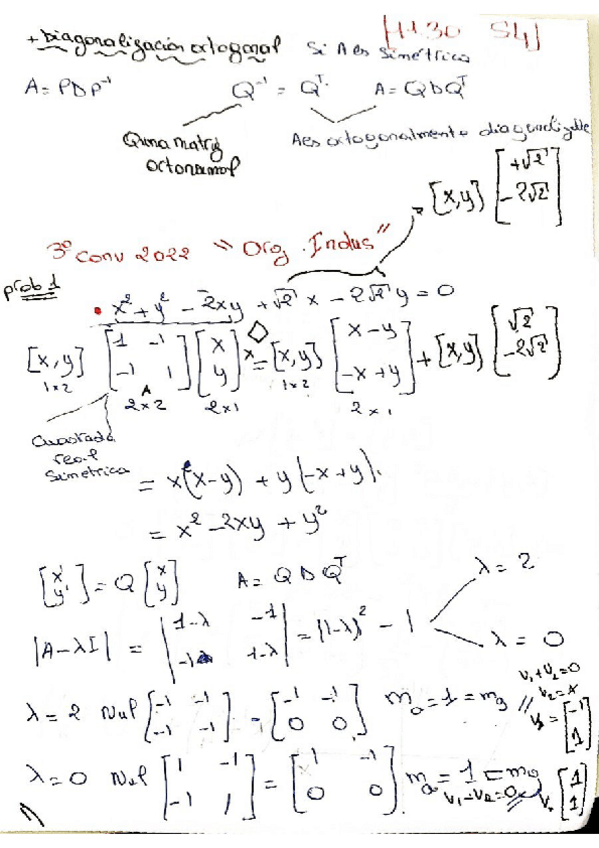 [11:30 S4]
+ Diagonalización ortogonal si A es simétrica
A = PDP⁻¹ Q⁻¹ = Qᵀ. A = QDQᵀ
Q una matriz octonormal
A es ortogonalmente diagonalizable
[x,y] [+√2 ; -2√2]
3º Conv 2022 "Org. Indus"
prob 1
• x² + y² - 2xy + √2 x - 2√2 y = 0
[x,y] [1 -1 ; -1 1] [x ; y] = [x,y] [x-y ; -x+y] + [x,y] [√2 ; -2√2]
1×2 A 2×2 2×1 1×2 2×1
Cuadrada real simetrica
= x(x-y) + y(-x+y).
= x² - 2xy + y²
[x' ; y'] = Q [x ; y] A = QDQᵀ
|A-λI| = |1-λ -1 ; -1 1-λ| = (1-λ)² - 1
λ = 2
λ = 0
λ = 2 Nul [-1 -1 ; -1 -1] = [-1 -1 ; 0 0] ma = 1 = mg //
v₁+v₂=0
v₂=
= [-1 ; 1]
λ = 0 Nul [1 -1 ; -1 1] = [1 -1 ; 0 0] ma = 1 = mg
v₁-v₂=0
[1 ; 1]